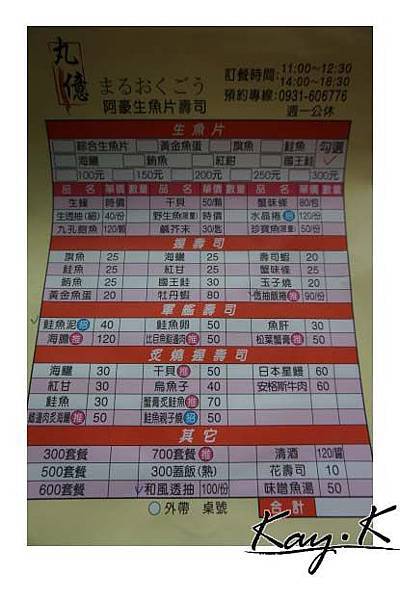 丸億
まるおくごう
阿豪生魚片壽司
訂餐時間: 11:00~12:30
14:00~18:30
預約專線: 0931-606776
週一公休
生魚片
綜合生魚片 黃金魚蛋 旗魚 鮭魚 勾選
海鱺 鮪魚 紅魽 國王鮭
100元 150元 200元 250元 300元
品名 單價 數量 品名 單價 數量 品名 單價 數量
生蠔 時價 干貝 50/顆 蟹味條 80/包
生透抽(細) 40/份 野生魚(限量) 時價 水晶捲 招 120/份
九孔鮑魚 120/顆 鹹芥末 30/匙 珍寶魚(限量) 50/份
握壽司
旗魚 25 海鱺 25 壽司蝦 20
鮭魚 25 紅甘 25 蟹味條 25
鮪魚 25 國王鮭 30 玉子燒 20
黃金魚蛋 20 牡丹蝦 80 透抽飯捲 推 90/份
軍艦壽司
鮭魚泥 招 40 鮭魚卵 50 魚肝 30
海膽 推 120 比目魚鰓邊肉 推 50 松葉蟹膏 推 50
炙燒握壽司
海鱺 30 干貝 推 50 日本星鰻 60
紅甘 30 烏魚子 40 安格斯牛肉 60
鮭魚 30 蟹膏炙鮭魚 推 70
鰓邊肉炙海鱺 推 50 鮭魚親子燒 招 50
其它
300套餐 700套餐 推 清酒 120/罐
500套餐 300蓋飯(熱) 花壽司 10
600套餐 和風透抽 100/份 味噌魚湯 50
外帶 桌號 合計
Kay.K